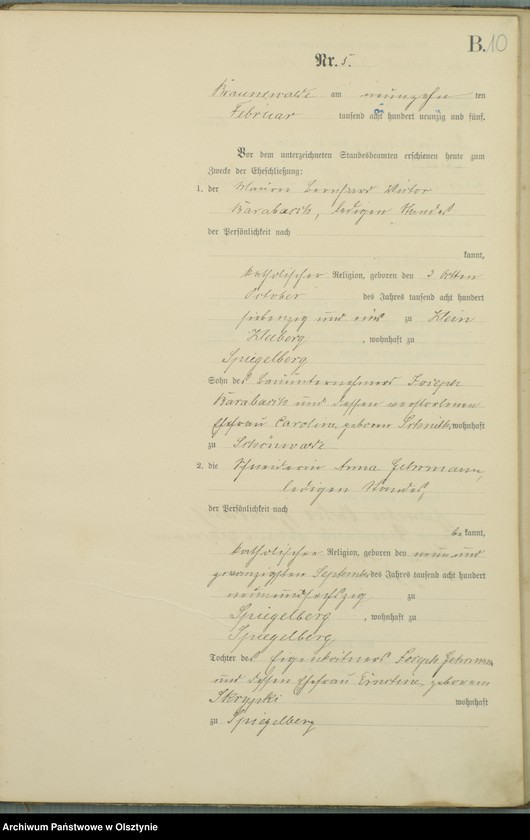 B. 10
Nr. 5.
Braunswalde am neunzehn ten
Februar tausend acht hundert neunzig und fünf.
Vor dem unterzeichneten Standesbeamten erschienen heute zum
Zwecke der Eheschließung:
1. der Maurer Bernhard Victor
Barabasch, ledigen Standes
der Persönlichkeit nach
kannt,
katholischer Religion, geboren den
October des Jahres tausend acht hundert
siebenzig und eins zu Klein
Kleeberg, wohnhaft zu
Spiegelberg
Sohn des Bauunternehmers Joseph
Barabasch und dessen verstorbenen
Ehefrau Caroline, geborene wohnhaft
zu Schönwalde
2. die Schneiderin Anna Gehrmann,
ledigen Standes,
der Persönlichkeit nach
be kannt,
katholischer Religion, geboren den neun und
zwanzigsten September des Jahres tausend acht hundert
neunundsechszig zu
Spiegelberg, wohnhaft zu
Spiegelberg
Tochter des Eigenkätners Joseph Gehrmann
und dessen Ehefrau Ernstine, geborenen
Skrypski wohnhaft
zu Spiegelberg
Archiwum Państwowe w Olsztynie